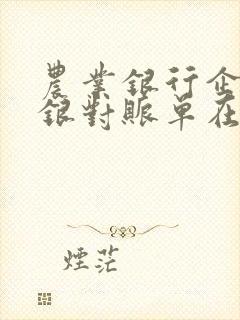 農業銀行企
銀對賬單在
煙茫